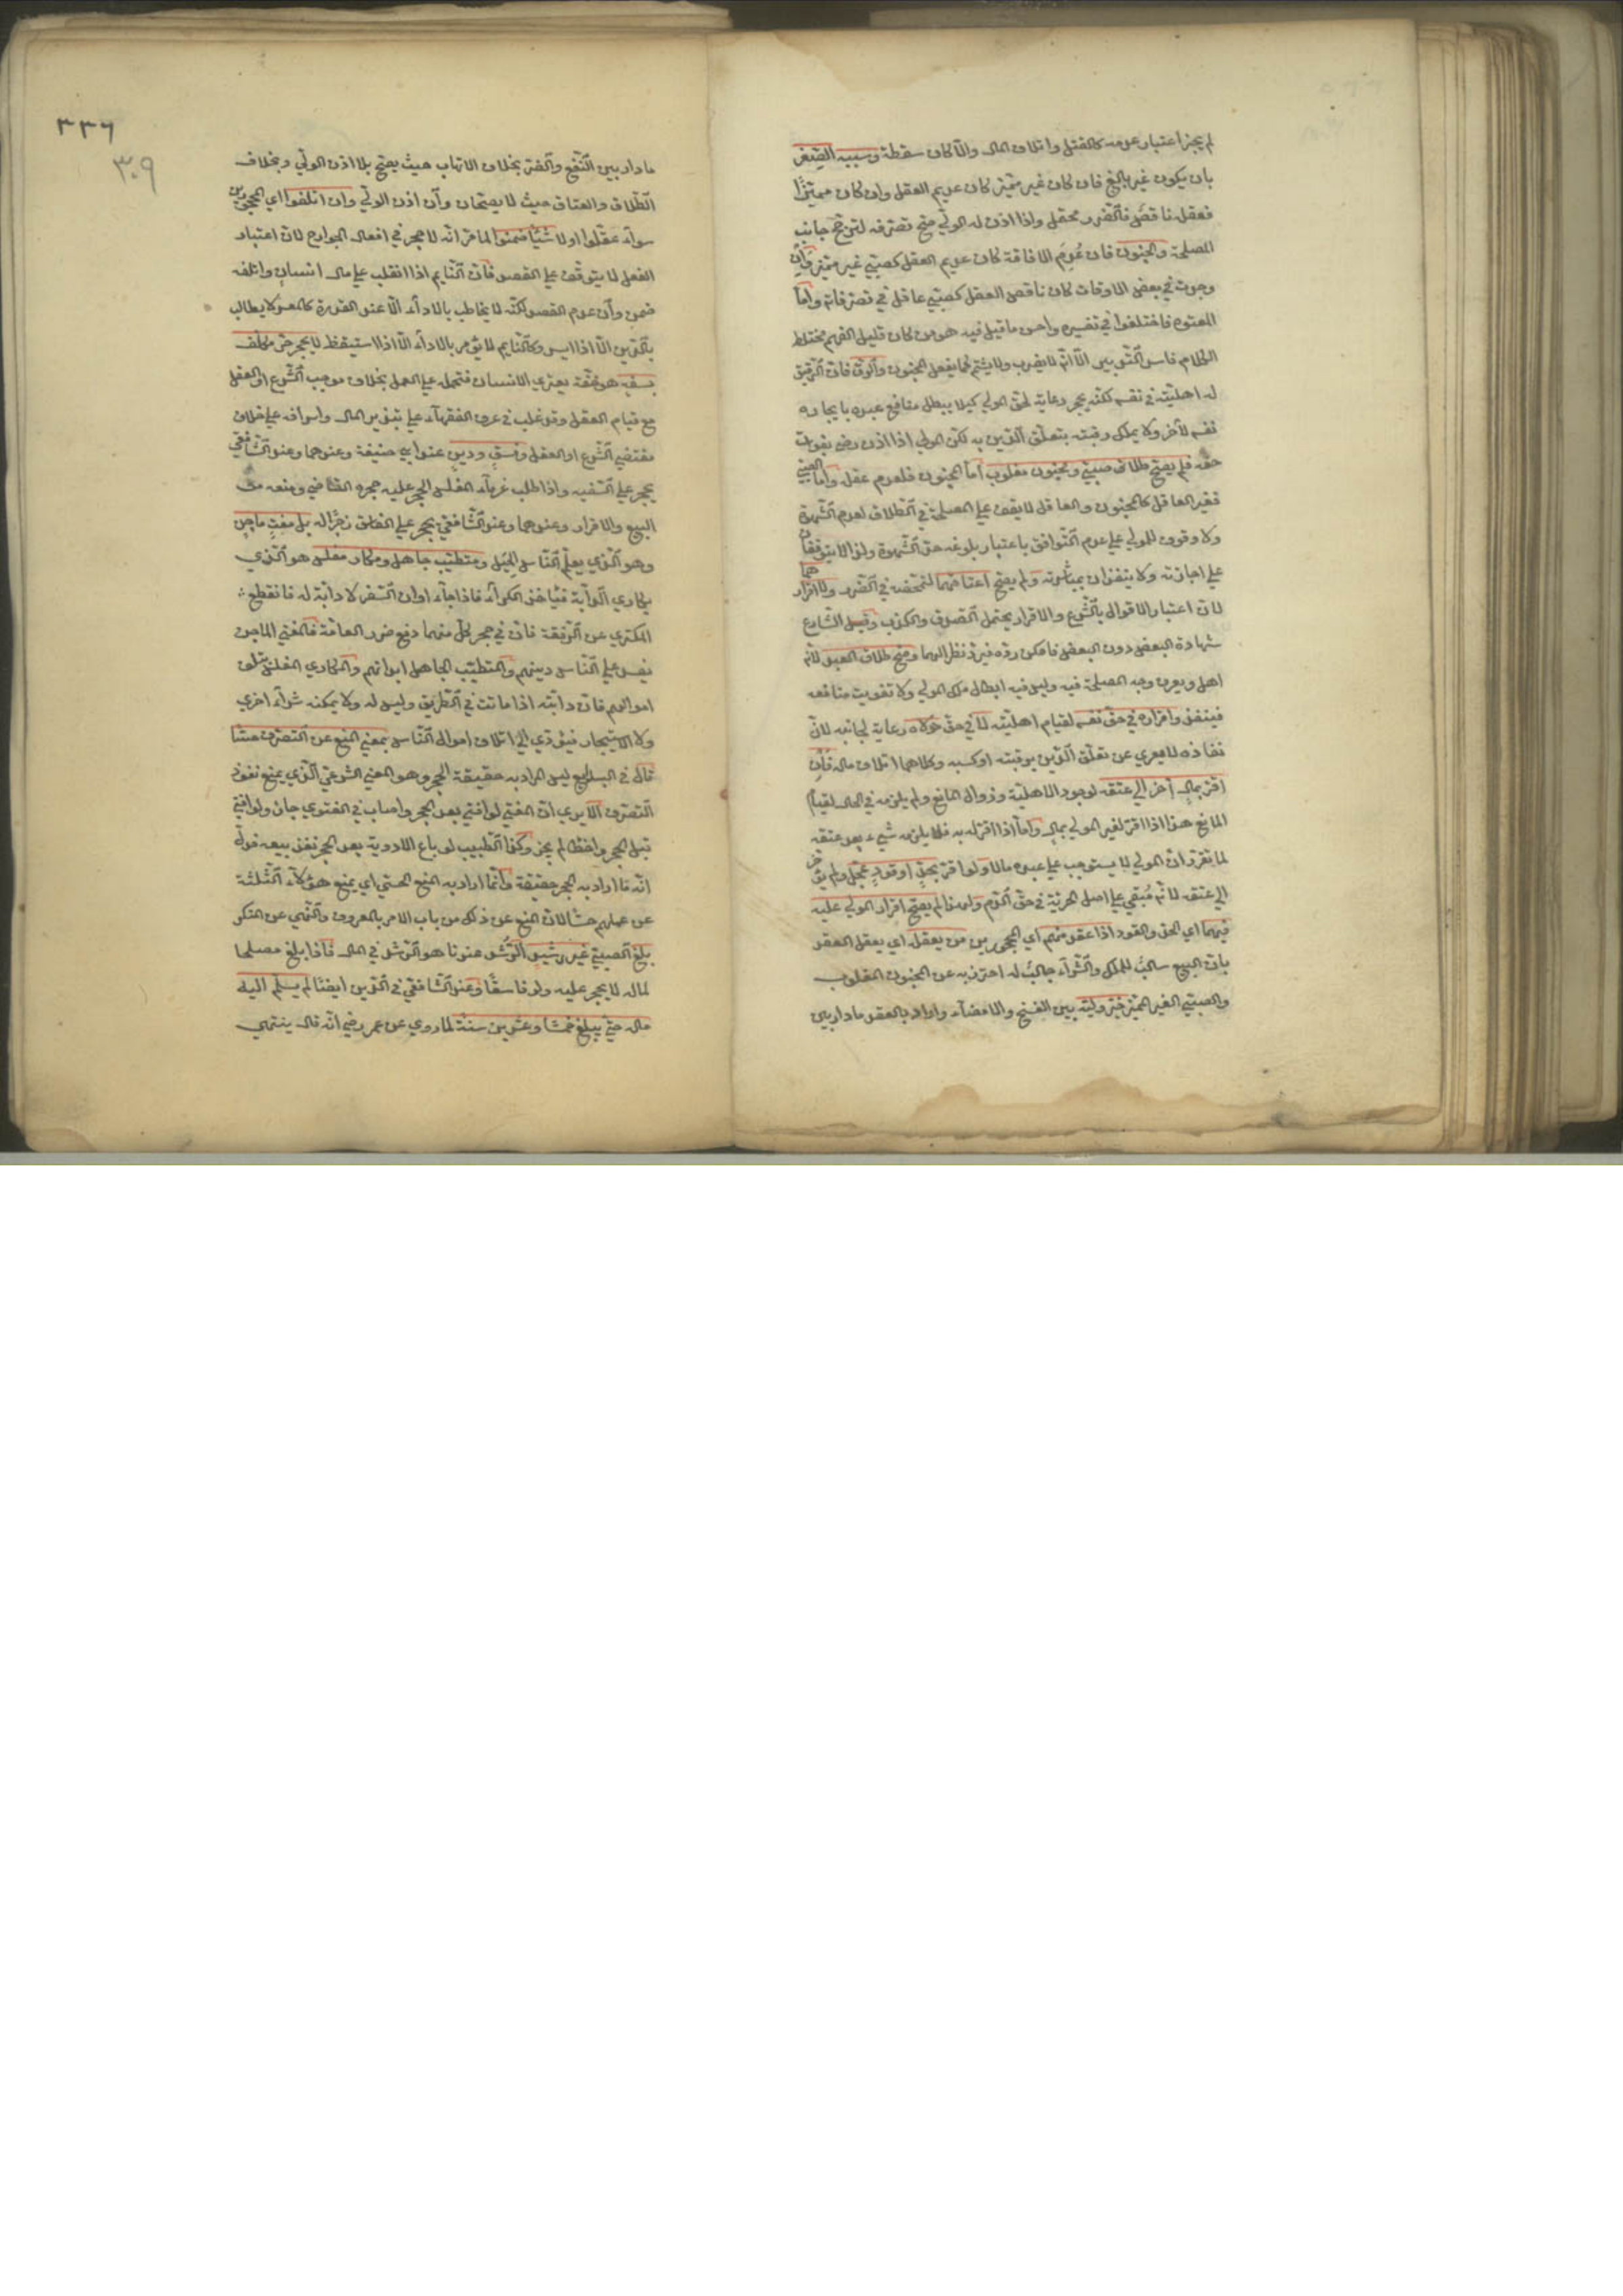 لم يجز اعتبار عدمه كالقتل واتلاف المال والّا كان سقطة وسببه الصّغر
بان يكون غير بالغ فان كان غير مميّز كان عديم العقل وان كان مميّزًا
فعقله ناقص فالضّرر محتمل واذا اذن له الوليّ صحّ تصرفه لترجّح جانب
المصلحة والجنون فان عُدِم الافاقة كان عديم العقل كصبيّ غير مميّز وان
وجدت في بعض الاوقات كان ناقص العقل كصبيّ عاقل في تصرفاته وامّا
المعتوه فاختلفوا في تفسيره واحسن ما قيل فيه هو من كان قليل الفهم مختلط
الكلام فاسد التّدبير الّا انّه لا يضرب ولا يشتم كما يفعل المجنون والرّقّ فان الرّقيق
له اهليّة في نفسه لكنّه يحجر رعاية لحقّ المولى كيلا يبطل منافع عبده بايجاره
نفسه لآخر ولا يملك رقبته بتعلّق الدّين به لكنّ المولى اذا اذن رضي بفوات
حقّه فلم يصحّ طلاق صبيّ ومجنون مغلوب امّا المجنون فلعدم عقله وامّا الصبيّ
فغير العاقل كالمجنون والعاقل لا يقف على المصلحة في الطّلاق لعدم الشّهوة
ولا وقوف للولي على عدم التّوافق باعتبار بلوغه حدّ الشّهوة ولذا لا يتوقفان
على اجازته ولا ينفذان بمباشرته ولم يصحّ اعتاقهما لتمحّضه في الضّرر ولا اقرارهما
لانّ اعتبار الاقوال بالشّرع والاقرار يحتمل الصدق والكذب وقبل الشّارع
شهادة البعض دون البعض فامكن ردّه فيردّ نظرا لهما وصحّ طلاق العبد لانّه
اهل ويعرف وجه المصلحة فيه وليس فيه ابطال ملك المولى ولا تفويت منافعه
فينفذ واقراره في حقّ نفسه لقيام اهليّته لا في حقّ مولاه رعاية لجانبه لانّ
نفاذه لا يعري عن تعلّق الدّين برقبته او كسبه وكلاهما اتلاف ماله فان
اقرّ بمال اُخّر الى عتقه لوجود الاهليّة وزوال المانع ولم يلزمه في الحال لقيام
المانع هذا اذا اقرّ لغير المولى بمال وامّا اذا اقرّ له به فلا يلزمه شيء بعد عتقه
لما تقرّر انّ المولى لا يستوجب على عبده مالا ولو اقرّ بحدّ او قود عُجّل ولم يؤخّر
الى عتقه لانّه مُبقي على اصل الحريّة في حقّ الدّم ولهذا لم يصحّ اقرار المولى عليه
فيهما اي الحدّ والقود اذا عقد منهم اي المحجورين من يعقله اي يعقل العقد
بانّ البيع سالب للملك والشّراء جالب له احترز به عن المجنون المغلوب
والصبيّ الغير المميّز خُيّر وليّه بين الفسخ والامضاء واراد بالعقد ما دار بين
٣٣٦
٣٠٩
ما دار بين النّفع والضرّ بخلاف الاتهاب حيث يصحّ بلا اذن الوليّ وبخلاف
الطّلاق والعتاق حيث لا يصحّان وان اذن الوليّ وان اتلفوا اي المحجورين
سواء عقلوا او لا شيئًا ضمنوا لما مرّ انّه لا حجر في افعال الجوارح لانّ اعتبار
الفعل لا يتوقّف على القصد فانّ النّايم اذا انقلب على مال انسان واتلفه
ضمن وان عدم القصد لكنّه لا يخاطب بالاداء الّا عند القدرة كالمعسر لا يطالب
بالدّين الّا اذا ايسر وكالنّايم لا يؤمر بالاداء الّا اذا استيقظ لا يحجر حرّ مكلّف
بسفه هو خفّة يعتري الانسان فتحمله على العمل بخلاف موجب الشّرع او العقل
مع قيام العقل وقد غلب في عرف الفقهاء على تبذير المال واسرافه على خلاف
مقتضى الشّرع او العقل وفسق ودين عند ابي حنيفة وعندهما وعند الشّافعيّ
يحجر على السّفيه واذا طلب غرماء المفلس الحجر عليه حجره القاضي ومنعه من
البيع والاقرار وعندهما وعند الشّافعيّ يحجر على الفاسق زجرًا له بل مفت ماجن
وهو الّذي يعلّم النّاس الحِيَل ومتطبّب جاهل ومكار مفلس هو الّذي
يكاري الدّابّة فيأخذ الكراء فاذا جاء اوان السّفر لا دابّة له فانقطع
المكتري عن الرّفقة فانّ في حجر كلّ منهما دفع ضرر العامّة فالمفتي الماجن
يفسد على النّاس دينهم والمتطبّب الجاهل ابدانهم والمكاري المفلس يتلف
اموالهم فانّ دابّته اذا ماتت في الطّريق وليس له ولا يمكنه شراء اخرى
ولا الاستيجار فيؤدّي الى اتلاف اموال النّاس بمعنى المنع عن التصرّف حسّا
قال في البدايع ليس المراد به حقيقة الحجر وهو المعنى الشرعيّ الّذي يمنع نفوذ
التّصرّف الا يرى انّ المفتي لو افتى بعد الحجر واصاب في الفتوى جاز ولو افتى
قبل الحجر واخطأ لم يجز وكذا الطّبيب لو باع الادوية بعد الحجر نفذ بيعه فدلّ
انّه ما اراد به الحجر حقيقة وانّما اراد به المنع الحسّي اي يمنع هؤلآء الثّلثة
عن عملهم حسّا لانّ المنع عن ذلك من باب الامر بالمعروف والنّهي عن المنكر
بلغ الصبيّ غير رشيد الرّشد عندنا هو الرّشد في المال فاذا بلغ مصلحا
لماله لا يحجر عليه ولو فاسقًا وعند الشّافعيّ في الدّين ايضًا لم يسلّم اليه
ماله حتّى يبلغ خمسًا وعشرين سنة لما روي عن عمر رضي انّه قال ينتهي